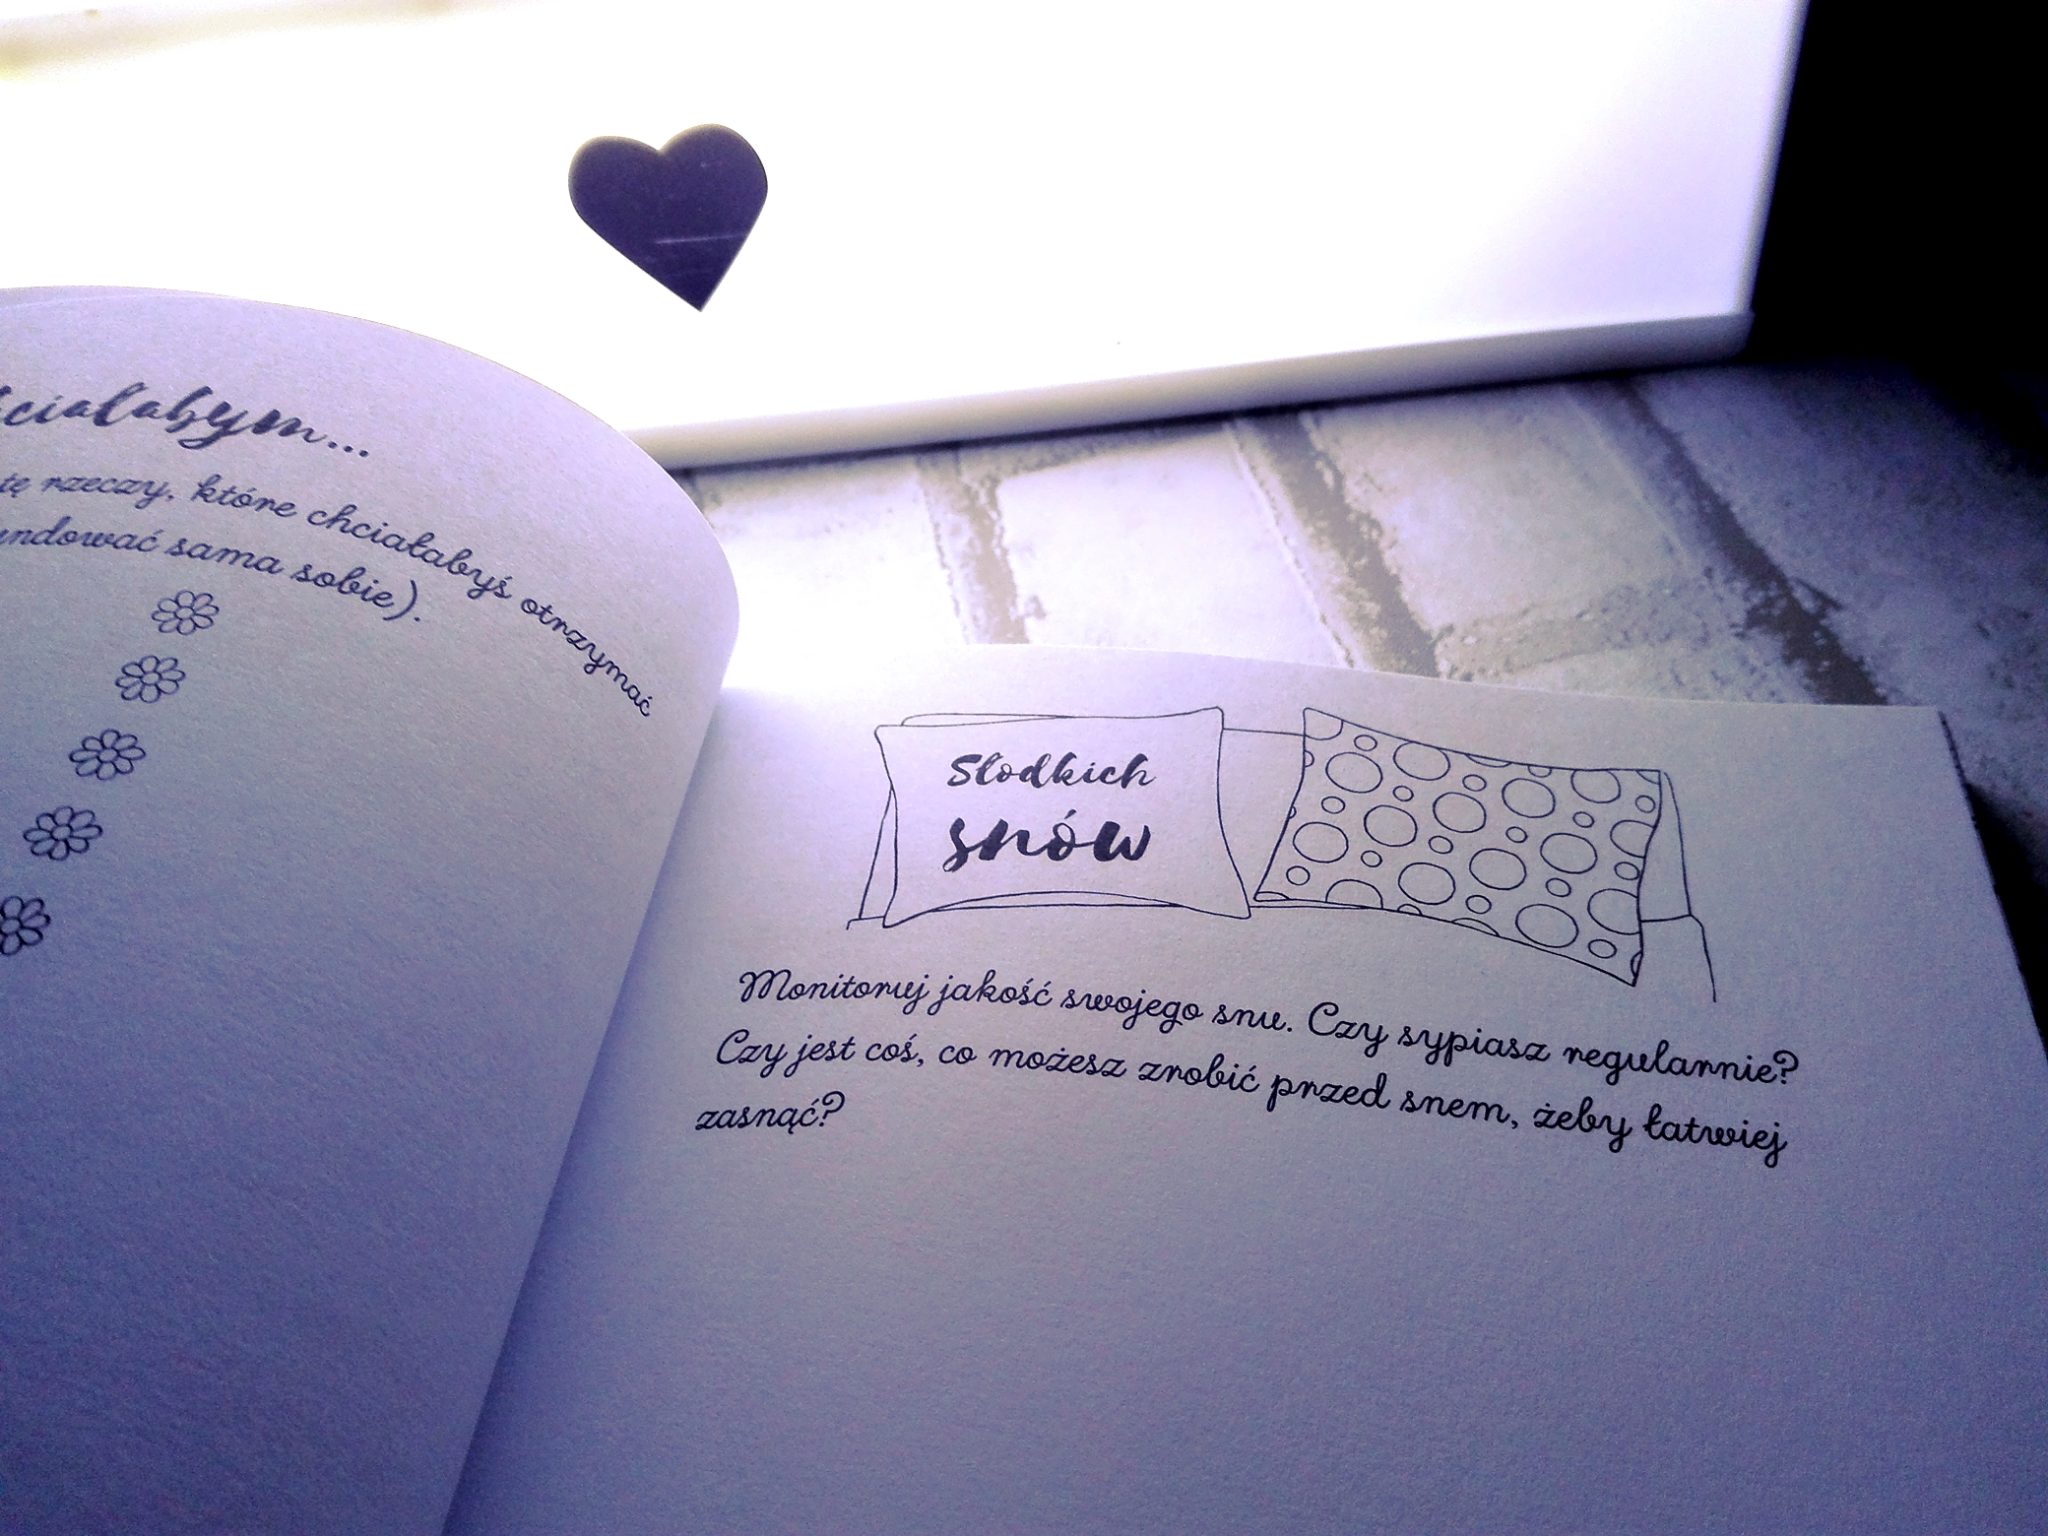 rzeczy, które chciałabyś otrzymać
sama sobie).
Słodkich
snów
Monitoruj jakość swojego snu. Czy sypiasz regularnie?
Czy jest coś, co możesz zrobić przed snem, żeby łatwiej
zasnąć?